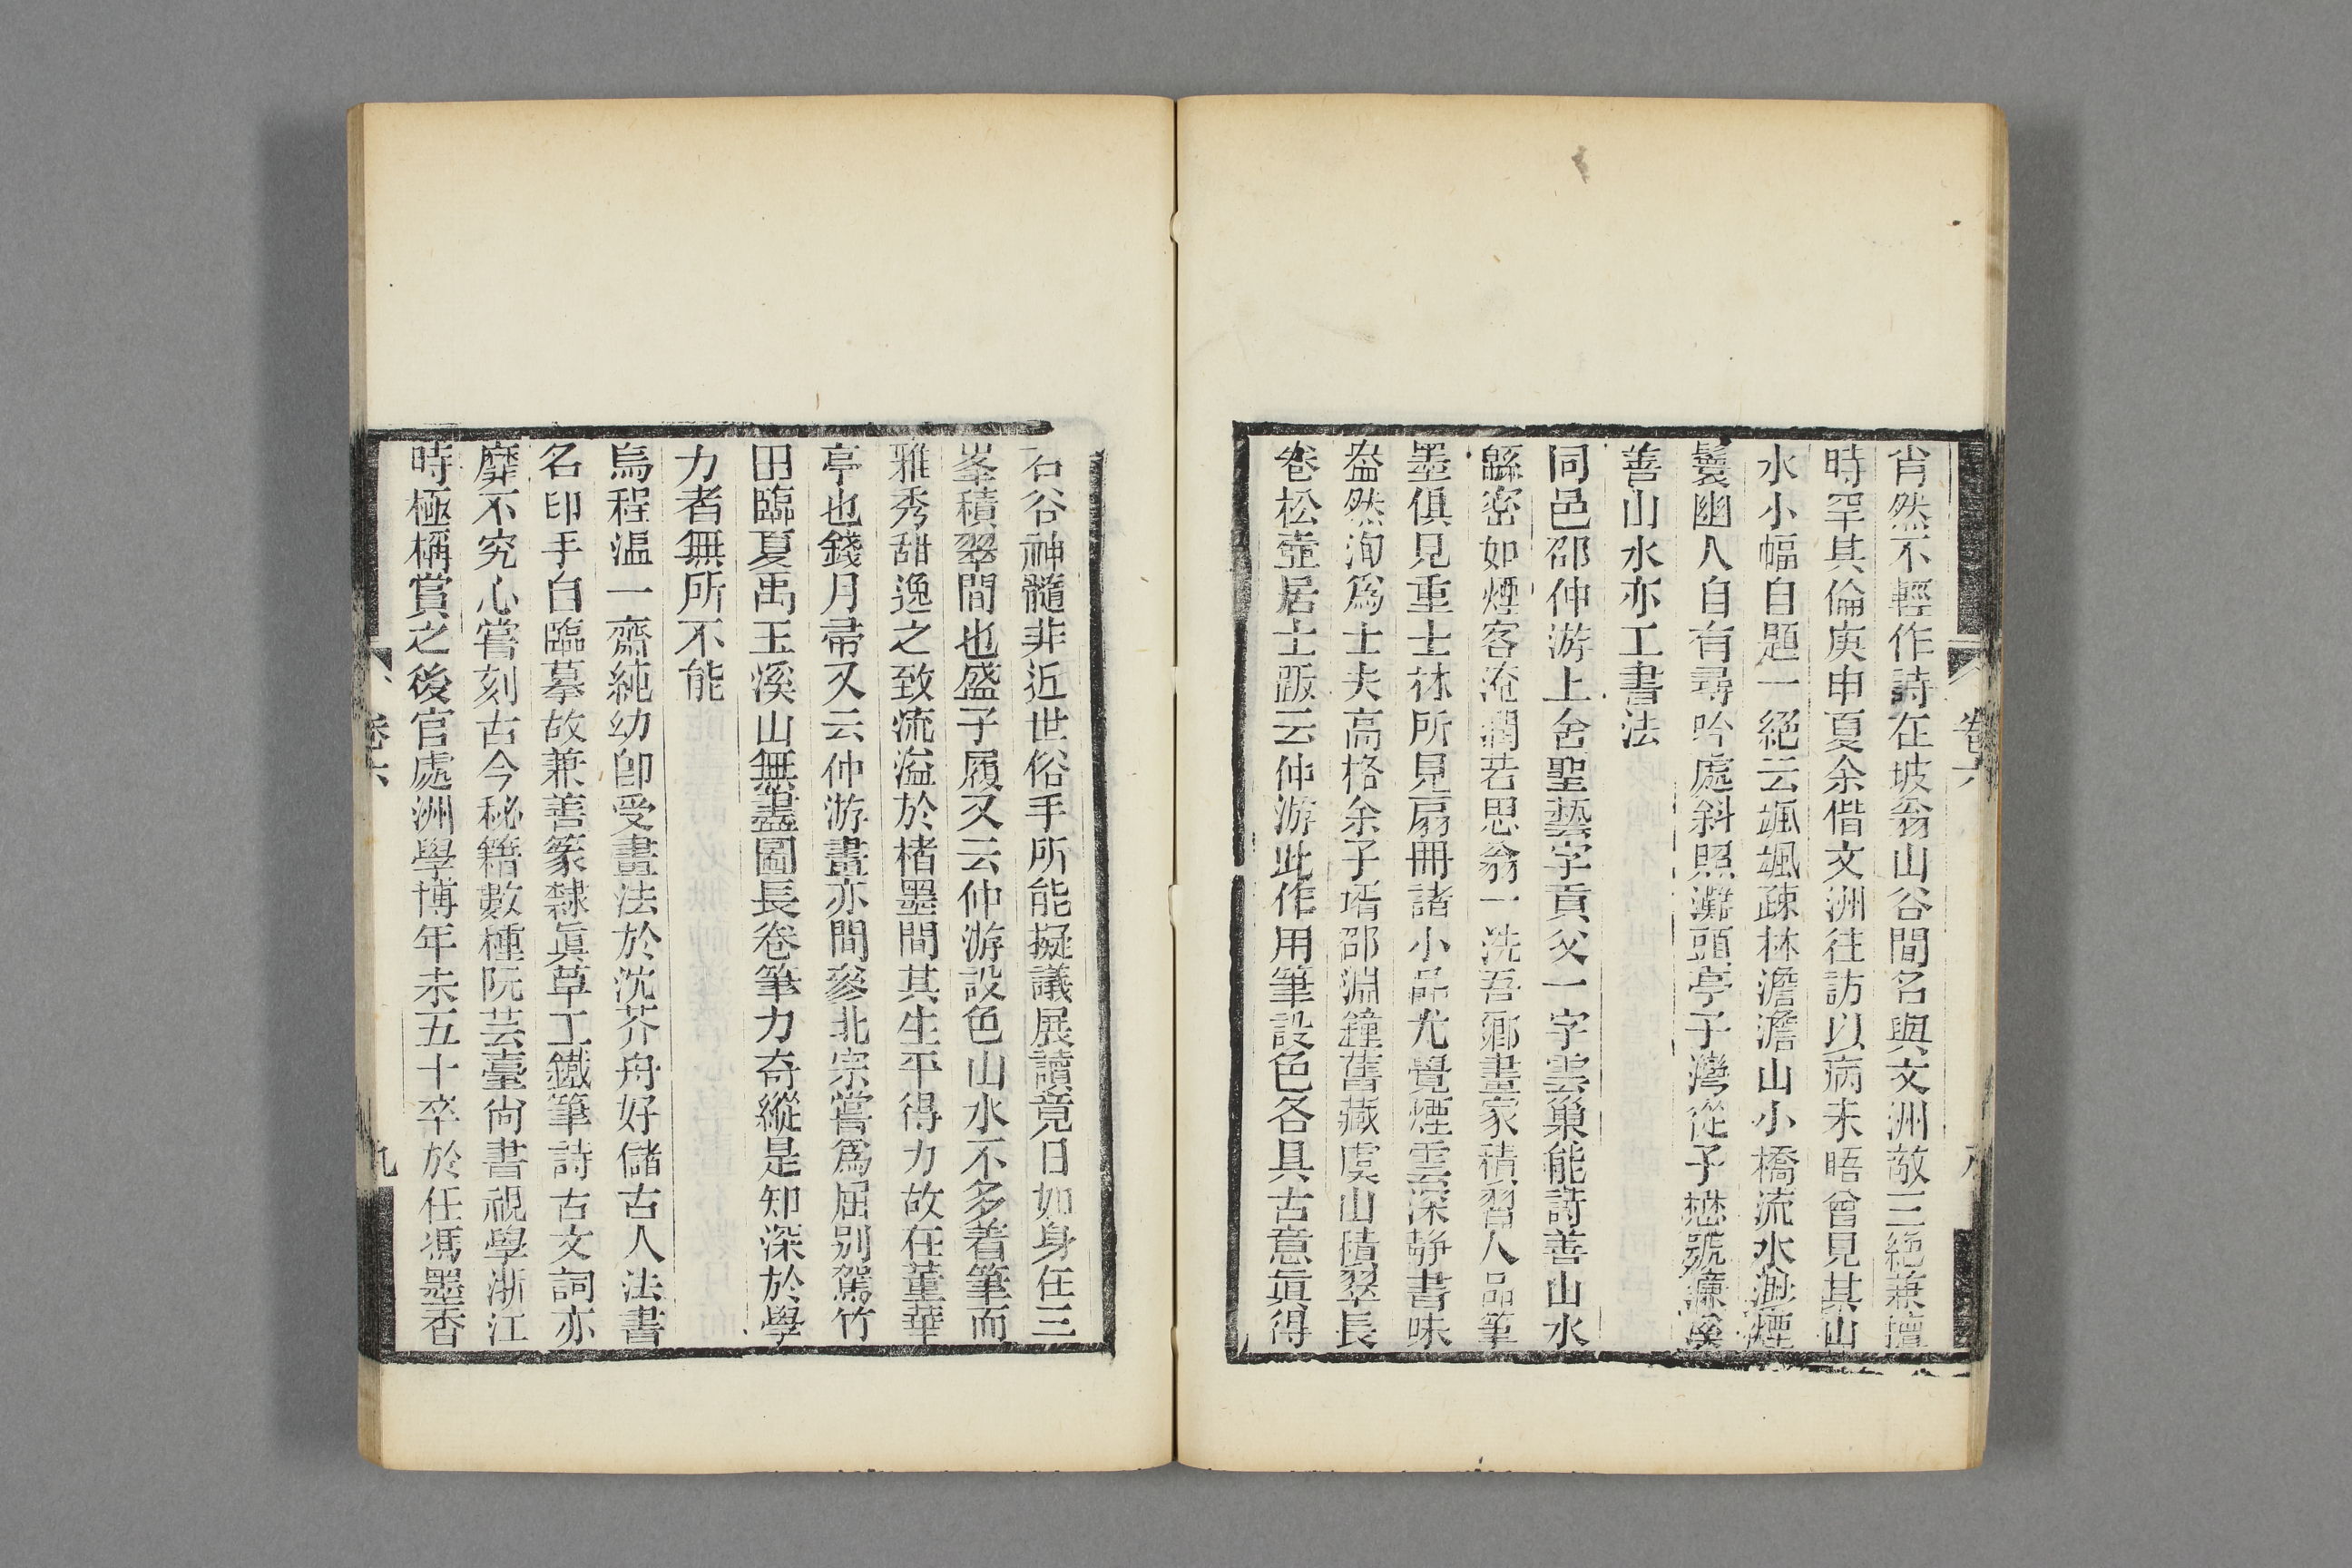 肯然不輕作詩在坡翁山谷間名與文洲敵三絕兼擅
時罕其倫庚申夏余偕文洲往訪以病未晤曾見其山
水小幅自題一絕云颯颯疎林澹澹山小橋流水澹煙
鬟幽人自有尋吟處斜照灘頭亭子灣從子懋號濂溪
善山水亦工書法
同邑邵仲游上舍聖藝字貢父一字雲巢能詩善山水
緜密如煙客淹潤若思翁一洗吾鄉畫家積習人品筆
墨俱見重士林所見扇冊諸小品尤覺煙雲深靜書味
盎然洵爲士夫高格余子壻邵淵鐘舊藏虞山積翠長
卷松壺居士跋云仲游此作用筆設色各具古意眞得
石谷神髓非近世俗手所能擬議展讀竟日如身在三
峯積翠間也盛子履又云仲游設色山水不多着筆而
雅秀甜逸之致流溢於楮墨間其生平得力故在董華
亭也錢月帚又云仲游畫亦間參北宗嘗爲屈別駕竹
田臨夏禹玉溪山無盡圖長卷筆力奇縱是知深於學
力者無所不能
烏程温一齋純幼卽受畫法於沈芥舟好儲古人法書
名印手自臨摹故兼善篆隸眞草工鐵筆詩古文詞亦
靡不究心嘗刻古今秘籍數種阮芸臺尙書視學浙江
時極稱賞之後官處洲學博年未五十卒於任馮墨香
卷六
九